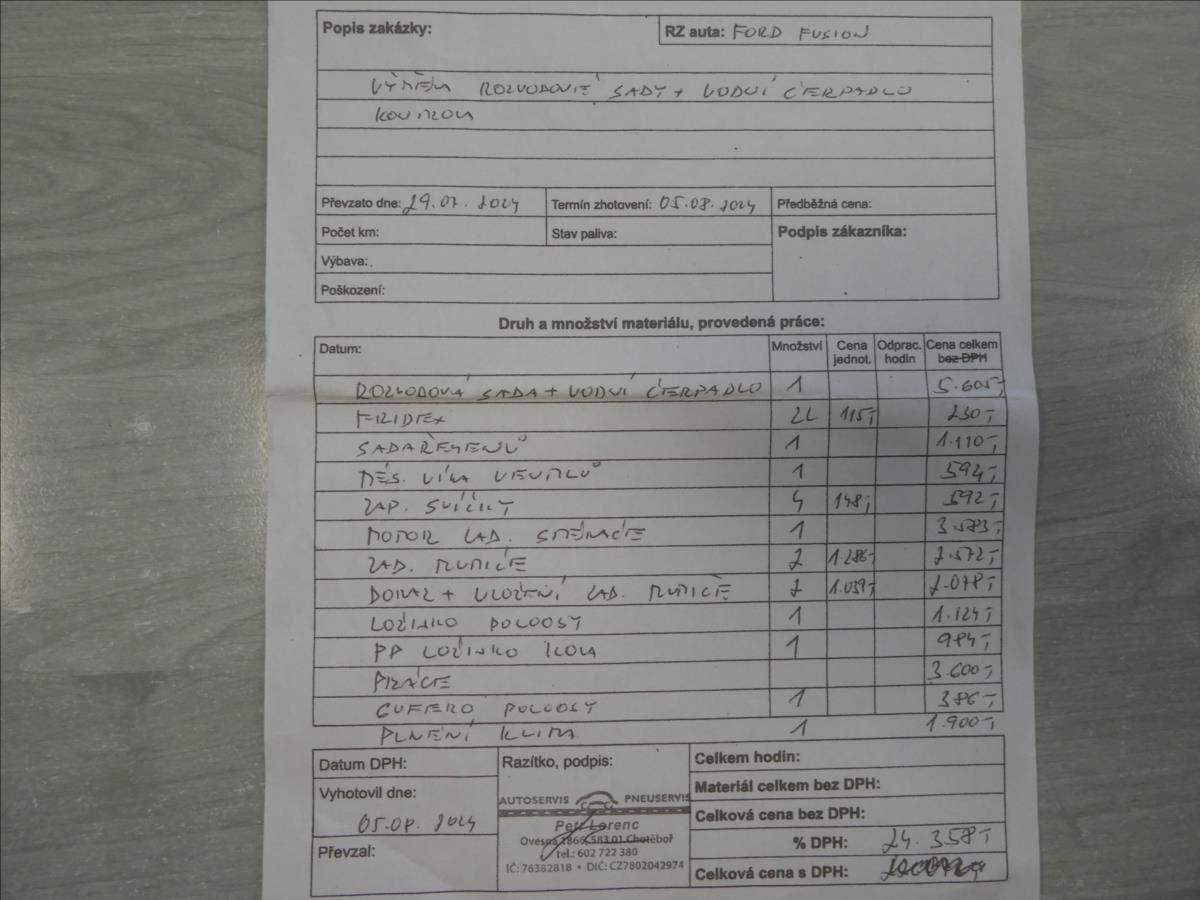 Popis zakázky:
RZ auta: FORD FUSION
VÝMĚNA ROZVODOVÉ SADY + VODNÍ ČERPADLO
KONTROLA
Převzato dne: 29.07.2024
Termín zhotovení: 05.08.2024
Předběžná cena:
Počet km:
Stav paliva:
Podpis zákazníka:
Výbava:
Poškození:
Druh a množství materiálu, provedená práce:
Datum: Množství Cena jednot. Odprac. hodin Cena celkem bez DPH
ROZVODOVÁ SADA + VODNÍ ČERPADLO 1 5.605,-
FRIDEX 2L 115,- 230,-
SADA ŘEMENŮ 1 1.110,-
TĚS. VÍKA VENTILŮ 1 594,-
ZAP. SVÍČKY 4 148,- 592,-
MOTOR ZAD. STĚRAČE 1 3.583,-
ZAD. TLUMIČE 2 1.286,- 2.572,-
DORAZ + ULOŽENÍ ZAD. TLUMIČE 2 1.039,- 2.078,-
LOŽISKO POLOOSY 1 1.124,-
PP LOŽISKO KOLA 1 984,-
PRÁCE 3.600,-
GUFERO POLOOSY 1 386,-
PLNĚNÍ KLIMA 1 1.900,-
Datum DPH:
Razítko, podpis:
Celkem hodin:
Vyhotovil dne:
05.08.2024
Materiál celkem bez DPH:
AUTOSERVIS PNEUSERVIS
Celková cena bez DPH:
Petr Lorenc
Ovesná 1866, 583 01 Chotěboř
% DPH: 24.358,-
Převzal:
tel.: 602 722 380
IČ: 76382818 • DIČ: CZ7802042974
Celková cena s DPH: